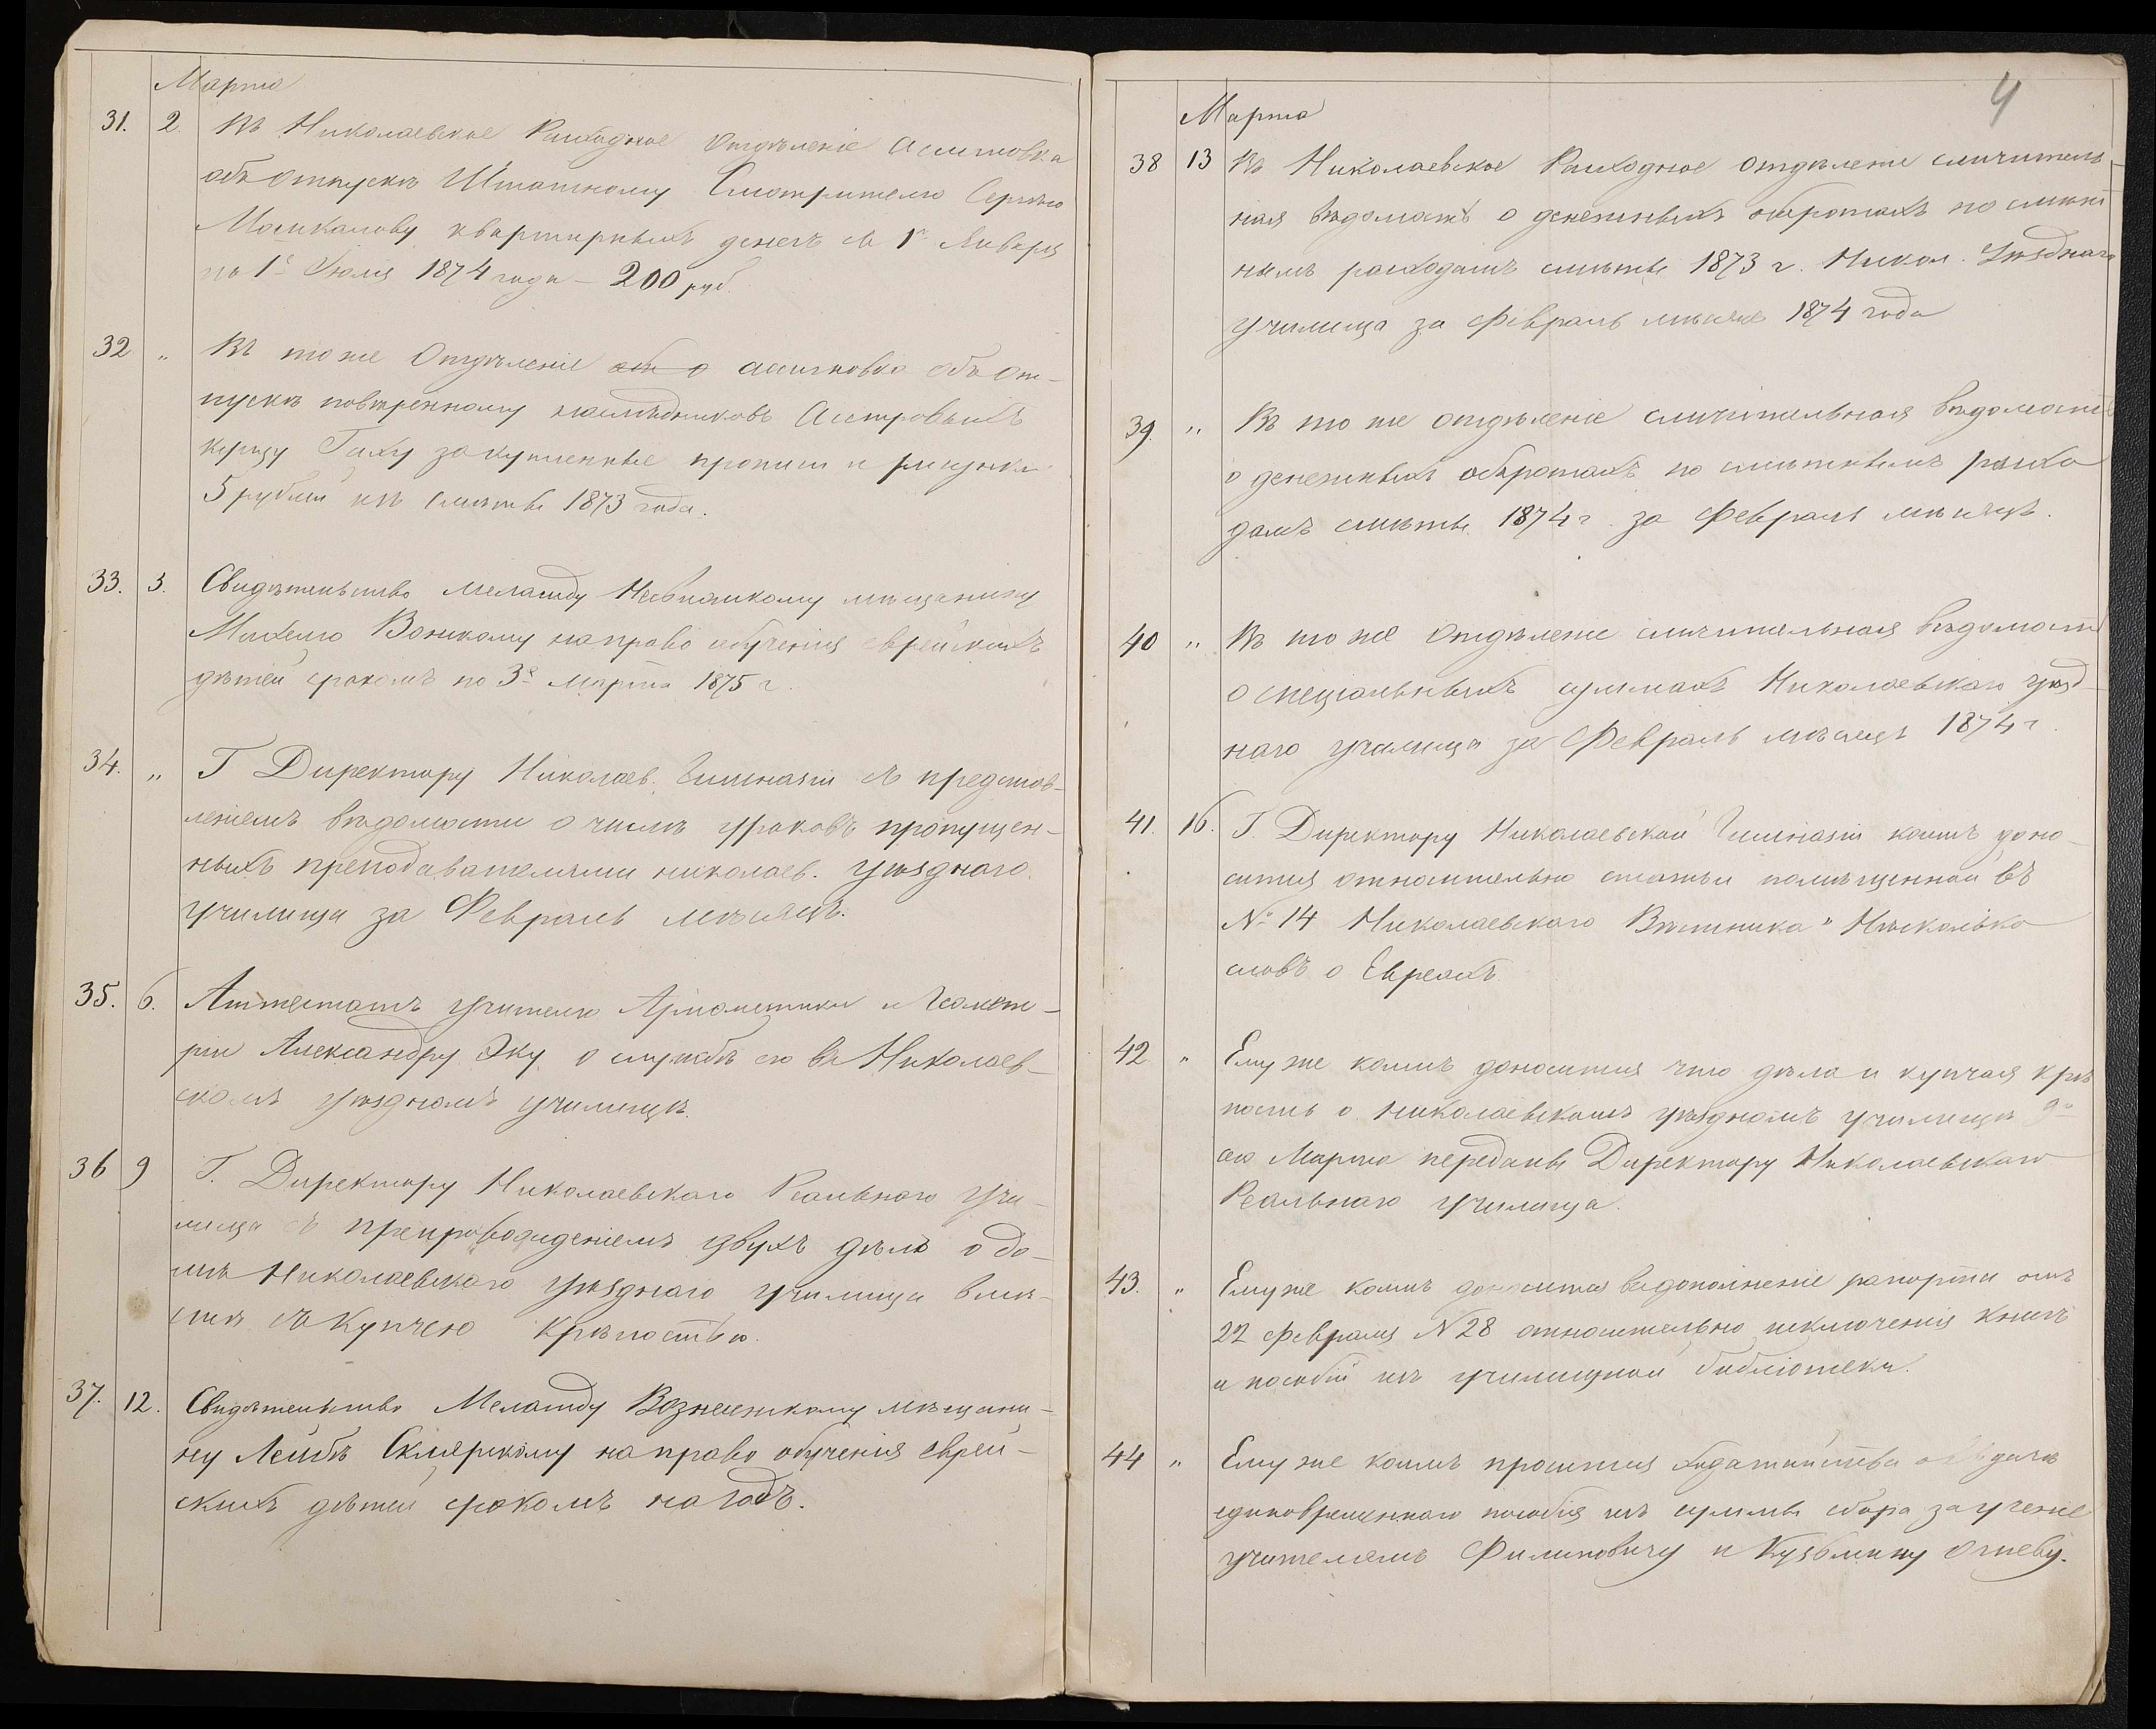 Марта
31. 2. Въ Николаевское Расходное Отдѣленіе Ассигновка
объ отпускѣ Штатному Смотрителю Сергѣю
квартирныхъ денегъ съ 1го Января
по 1е Іюля 1874 года – 200 руб.
32 „ Въ тоже Отдѣленіе о ассигновка объ от-
пускѣ повѣренному наслѣдниковъ
Гаху за купленные прописи и рисунки
5 рублей изъ Смѣты 1873 года.
33. 3. Свидѣтельство меламду мѣщанину
на право обученія еврейскихъ
дѣтей срокомъ по 3е Марта 1875 г.
34. „ Г Директору Николаев. Гимназіи съ представ-
леніемъ вѣдомости о числѣ уроковъ пропущен-
ныхъ преподавателями николаев. уѣзднаго
училища за Февраль мѣсяцъ.
35. 6. Аттестатъ учителю Ариѳметики и Геомет-
ріи Александру Эку о службѣ его въ Николаев-
скомъ уѣздномъ училищѣ.
36 9 Г. Директору Николаевскаго Реальнаго Учи-
лища съ препровожденіемъ двухъ дѣлъ о до-
мѣ Николаевскаго уѣзднаго училища вмѣ-
стѣ съ Купчею крѣпостью.
37. 12. Свидѣтельство Меламду Вознесенскому мѣщани-
ну Лейбѣ Склярскому на право обученія еврей-
скихъ дѣтей срокомъ на годъ.
4
Марта
38 13 Въ Николаевское Расходное отдѣлене сличитель-
ная вѣдомость о денежныхъ оборотахъ по смѣт
нымъ расходамъ смѣты 1873 г. Никол. Уѣзднаго
училища за Февраль мѣсяцъ 1874 года
39. „ Въ то же отдѣленіе сличительная вѣдомость
о денежныхъ оборотахъ по смѣтнымъ расхо
дамъ смѣты 1874 г. за Февраль мѣсяцъ.
40 „ Въ то же Отдѣленіе сличительная вѣдомость
о спеціальныхъ суммахъ Николаевскаго уѣзд-
наго училища за Февраль мѣсяцъ 1874 г.
41. 16. Г. Директору Николаевской Гимназіи коимъ доно-
сится относительно статьи помѣщенной въ
№ 14 Николаевскаго Вѣстника „Нѣсколько
словъ о Евреяхъ
42 „ Ему же коимъ доносится что дѣла и купчая крѣ
пость о николаевскомъ уѣздномъ училищѣ 9го
сего Марта переданы Директору Николаевскаго
Реальнаго училища.
43. „ Ему же коимъ доносится въ дополненіе рапорта отъ
22 Февраля N 28 относительно исключенія книгъ
и пособій изъ училищной библіотеки.
44 „ Ему же коимъ просится ходатайства о выдачѣ
единовременнаго пособія изъ суммы сбора за ученіе
учителямъ Филиповичу и Кузьмину Огневу.